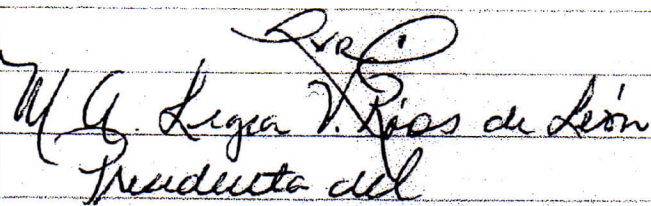 M A. Ligia V. Ríos de León
Presidenta del